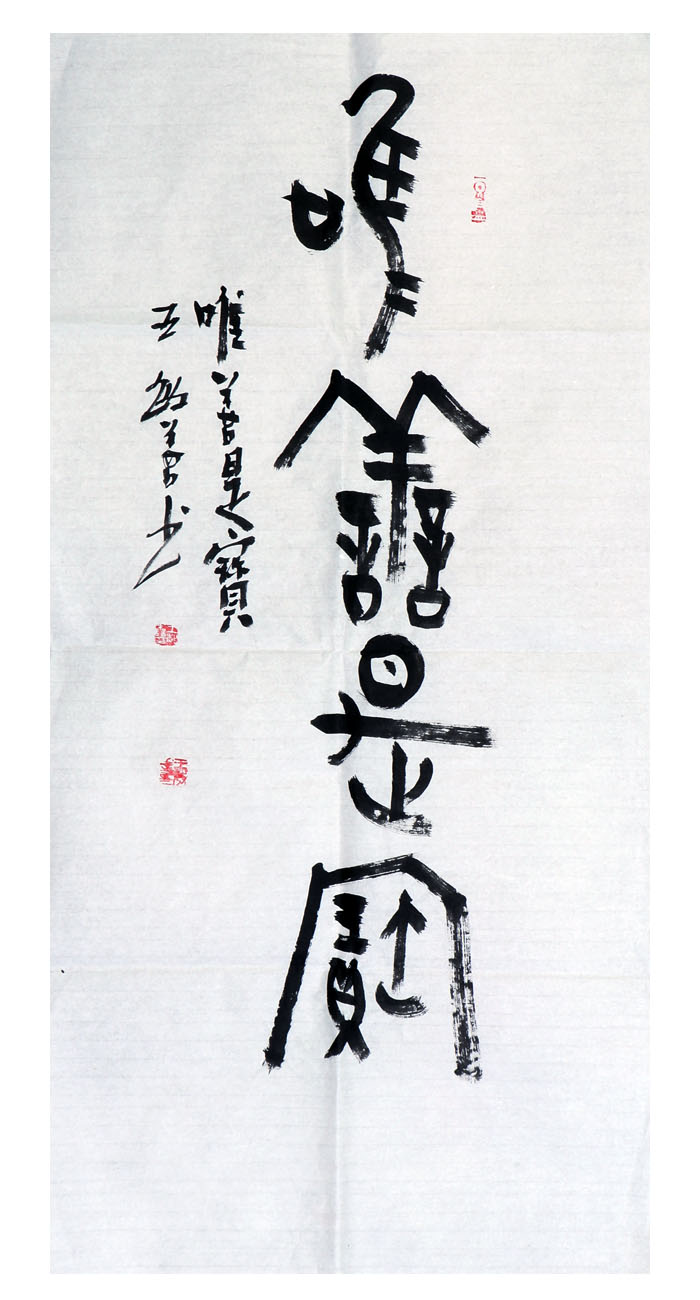 唯譱是寶
唯善是寶
王善书